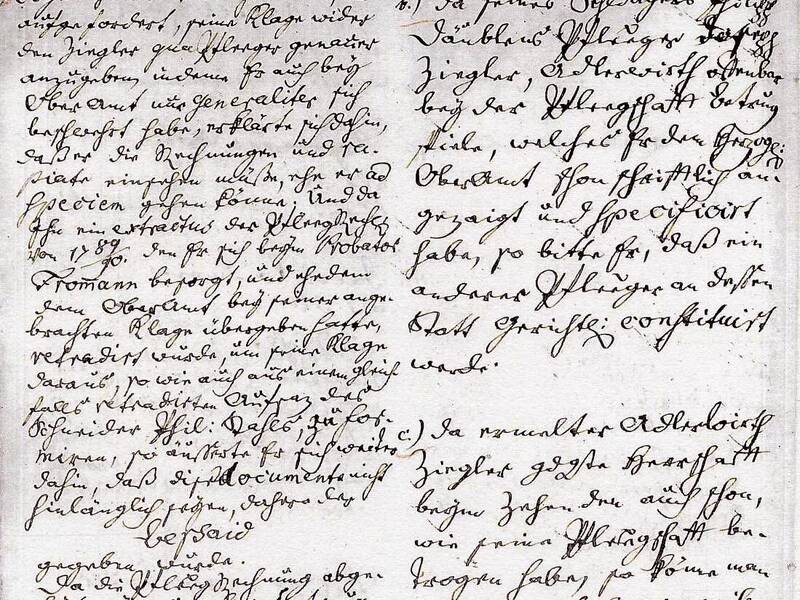 aufgefordert, seine Klage wider
den Ziegler qua Pfleeger genauer
anzugeben, indeme Er auch beÿ
OberAmt nur generaliter sich
beschwehrt habe, erklärte sich dahin,
daß er die Rechnungen und
einsehen müße, ehe er ad
speciem gehen könne; Und da
Ihn ein extractus der PfleegRechn:
von 1789/90. den Er sich beym Probator
Fromann besorgt, und ehedem
dem OberAmt beÿ seiner ange-
brachten Klage übergeben hatte,
retradirt wurde, um seine Klage
daraus, so wie auch aus einem gleich
falls retradirten Aufsaz des
Schneider Phil: Dahls, zu for-
miren, so äusserte Er sich weiter
dahin, daß dise documente nicht
hinlänglich seÿen, dahero der
Beschaid
gegeben wurde.
Da die PfleegRechnung abge-
b.) da seines
Däublens Pfleeger Joseph
Ziegler, Adlerwirth offenbar
beÿ der Pfleegschafft Betrug
spiele, welches Er dem Herzogl:
OberAmt schon schrifftlich an-
gezaigt und specificirt
habe, so bitte Er, daß ein
anderer Pfleeger an dessen
Statt Gerichtl: constituirt
werde.
c.) da ermelter Adlerwirth
Ziegler gdgste Herrschafft
beym Zehenden auch schon,
wie seine Pfleegschafft be-
trogen habe, so köne man